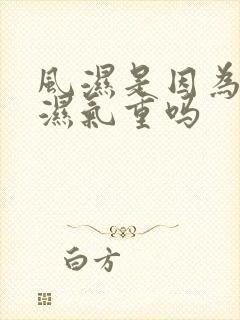 風濕是因為
濕氣重吗
白方